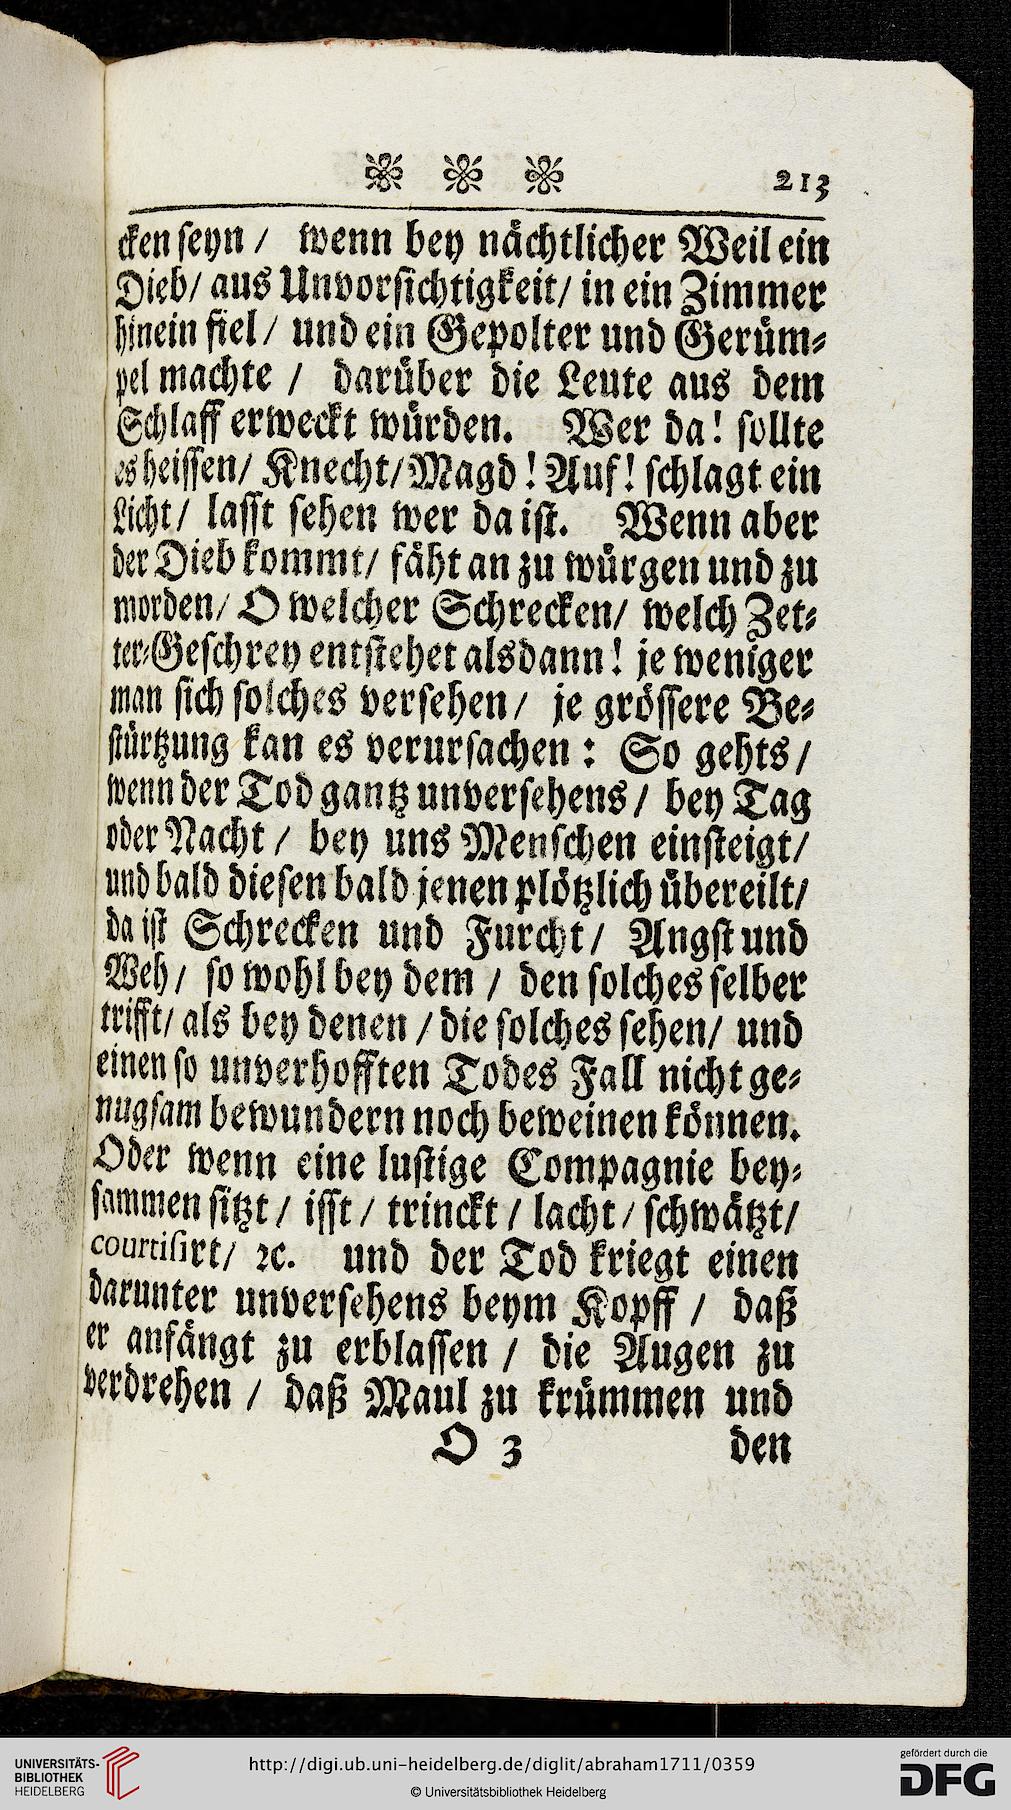 213
cken seyn / wenn bey nächtlicher Weil ein
Dieb / aus Unvorsichtigkeit / in ein Zimmer
hinein fiel / und ein Gepolter und Gerüm⸗
pel machte / darüber die Leute aus dem
Schlaff erweckt würden. Wer da! sollte
es heissen / Knecht / Magd! Auf! schlagt ein
Licht / lasst sehen wer da ist. Wenn aber
der Dieb kommt / fäht an zu würgen und zu
morden / O welcher Schrecken / welch Zet⸗
ter⸗Geschrey entstehet alsdann! je weniger
man sich solches versehen / je grössere Be⸗
stürtzung kan es verursachen: So gehts /
wenn der Tod gantz unversehens / bey Tag
oder Nacht / bey uns Menschen einsteigt /
und bald diesen bald jenen plötzlich übereilt /
da ist Schrecken und Furcht / Angst und
Weh / so wohl bey dem / den solches selber
trifft / als bey denen / die solches sehen / und
einen so unverhofften Todes Fall nicht ge⸗
nugsam bewundern noch beweinen können.
Oder wenn eine lustige Compagnie bey⸗
sammen sitzt / isst / trinckt / lacht / schwätzt /
courtisirt / ꝛc. und der Tod kriegt einen
darunter unversehens beym Kopff / daß
er anfängt zu erblassen / die Augen zu
verdrehen / daß Maul zu krümmen und
O 3 den
UNIVERSITÄTS-
BIBLIOTHEK
HEIDELBERG
http://digi.ub.uni-heidelberg.de/diglit/abraham1711/0359
© Universitätsbibliothek Heidelberg
gefördert durch die
DFG